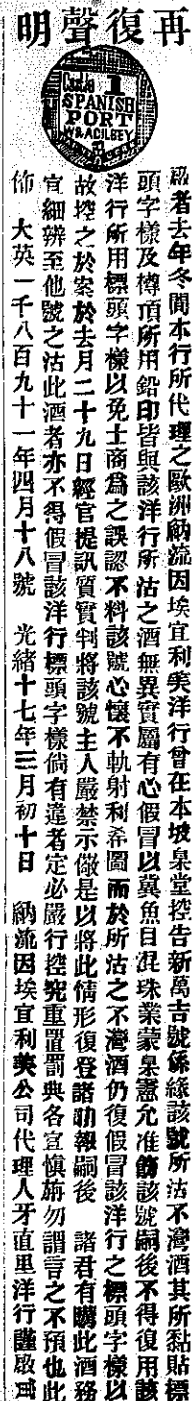 再復聲明
Castle 1
SPANISH
PORT
W&A GILBEY
啟者去年冬間本行所代理之歐洲納流因埃宜利美洋行曾在本坡臬堂控告新萬吉號係緣該號所沽不灣酒其所黏貼標
頭字樣及樽頂所用鉛印皆與該洋行所沽之酒無異實屬有心假冒以冀魚目混珠業蒙臬憲允准飭該號嗣後不得復用該
洋行所用標頭字樣以免士商爲之誤認不料該號心懷不軌射利希圖而於所沽之不灣酒仍復假冒該洋行之標頭字樣以
故控之於案於去月二十九日經官提訊質實判將該號主人嚴禁示儆是以將此情形復登諸叻報嗣後 諸君有購此酒務
宜細辨至他號之沽此酒者亦不得假冒該洋行標頭字樣倘有違者定必嚴行控究重置罰典各宜慎旃勿謂言之不預也此
佈 大英一千八百九十一年四月十八號 光緒十七年三月初十日 納流因埃宜利美公司代理人牙直里洋行謹啟